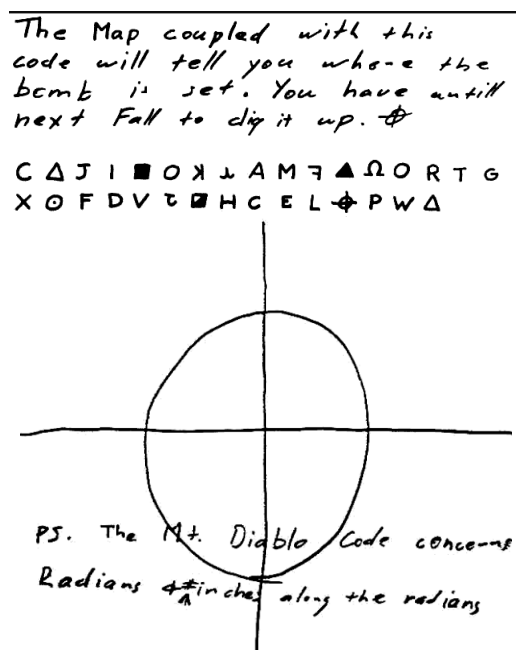 The Map coupled with this
code will tell you where the
bomb is set. You have untill
next Fall to dig it up. ⌖
C Δ J I ■ O ꓘ ⅄ A M ꟻ ▲ Ω O R T G
X ⊙ F D V ꚍ ◪ H C E L ⌖ P W Δ
PS. The Mt. Diablo Code concerns
Radians & # inches along the radians